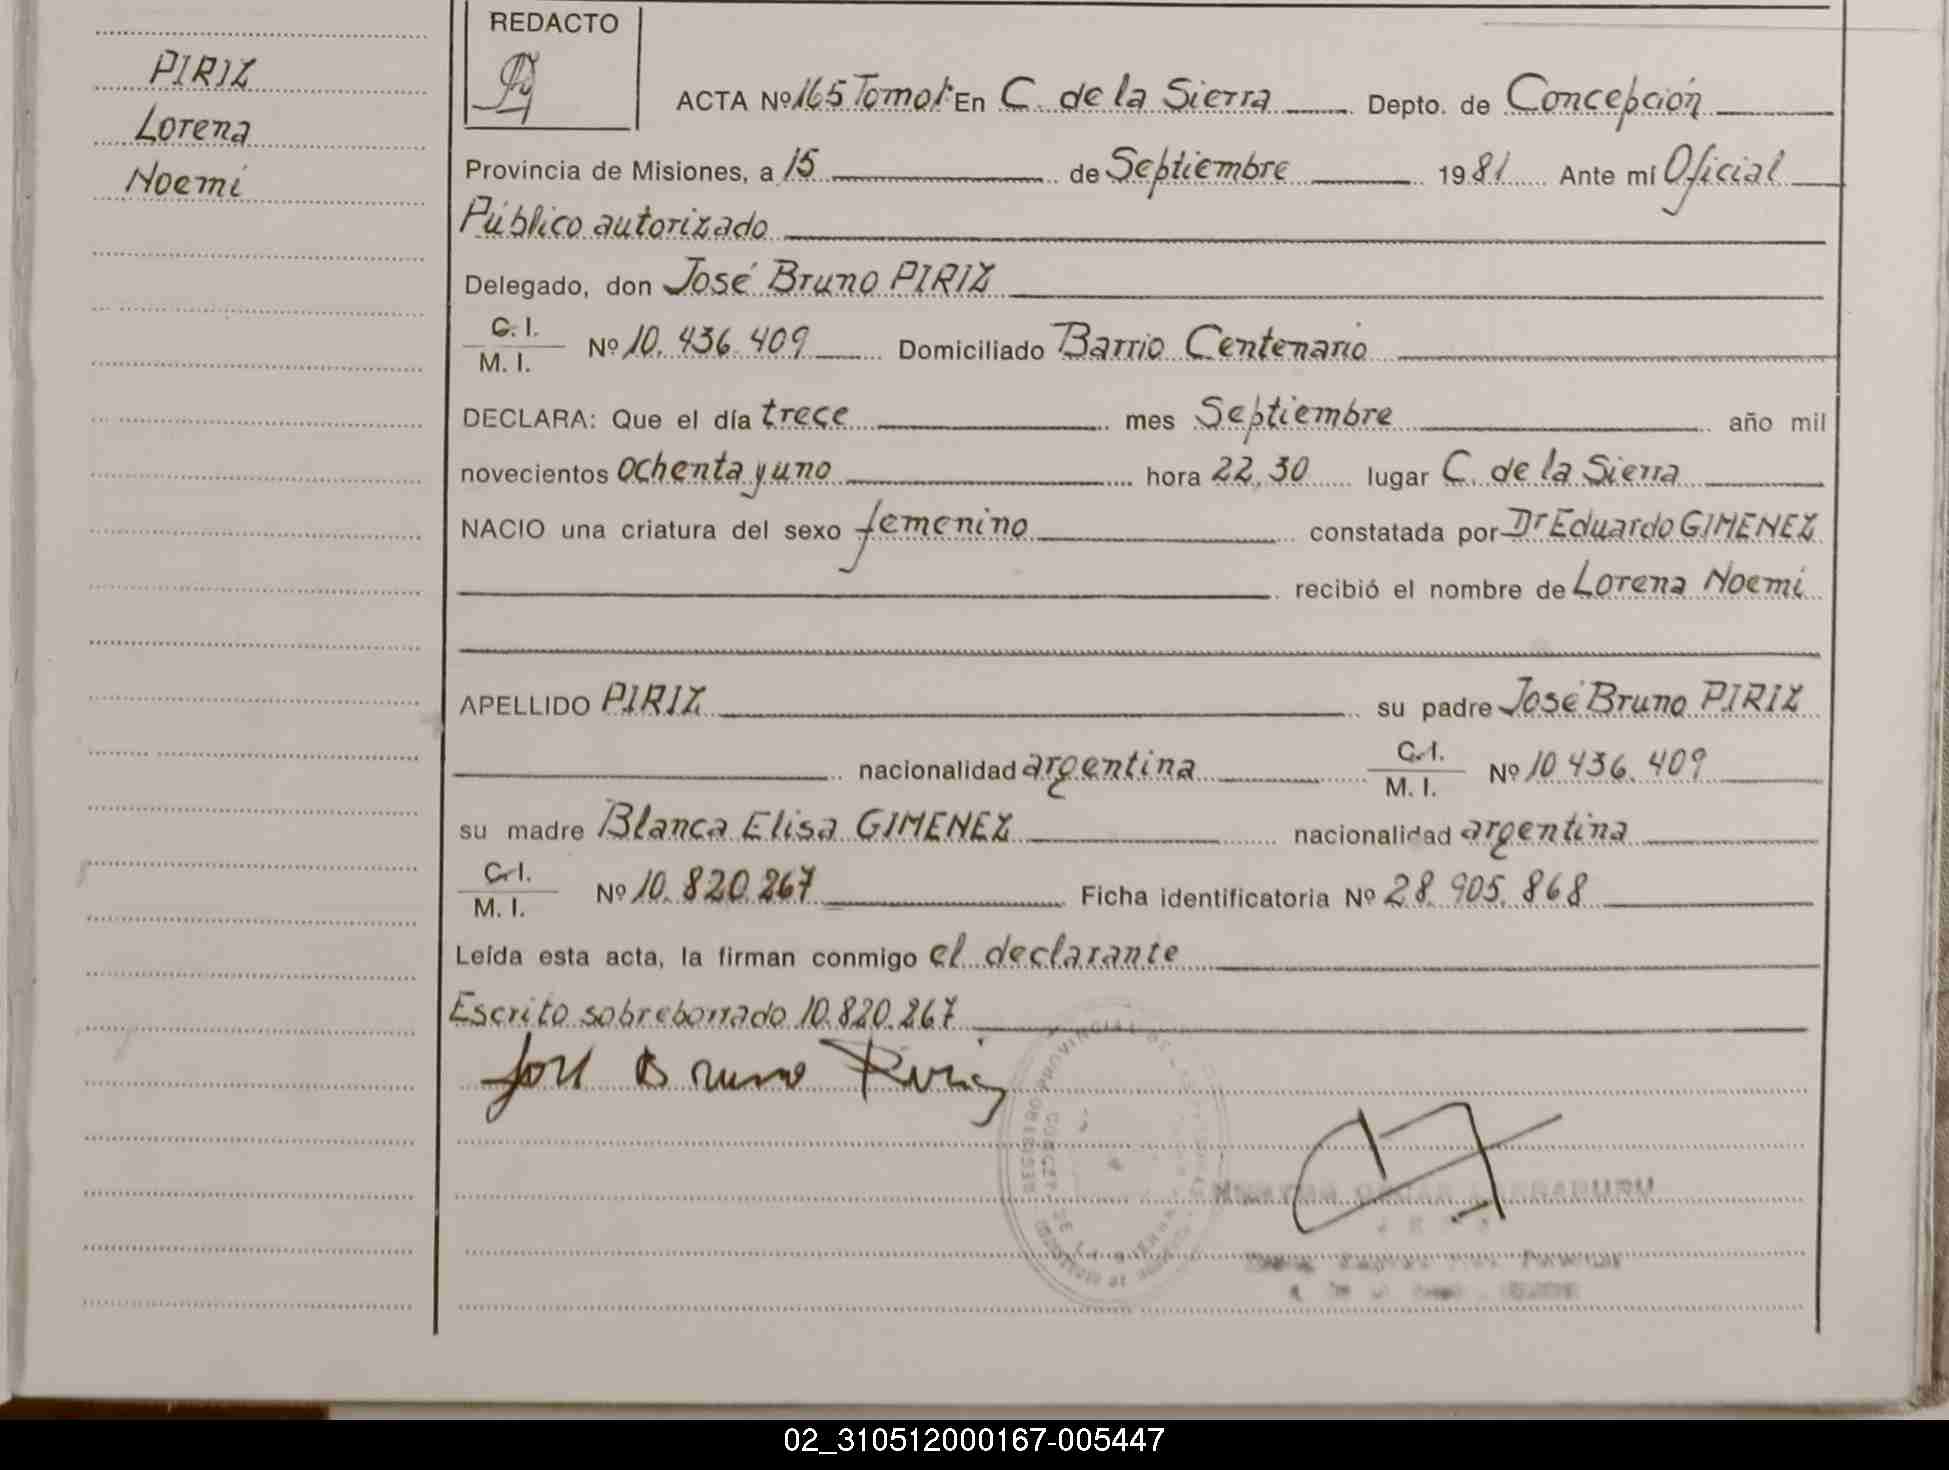 PIRIZ
Lorena
Noemi
REDACTO
ACTA Nº 165 Tomo I En C. de la Sierra Depto. de Concepción
Provincia de Misiones, a 15 de Septiembre 1981 Ante mí Oficial
Público autorizado
Delegado, don José Bruno PIRIZ
C. I.
M. I. Nº 10.436.409 Domiciliado Barrio Centenario
DECLARA: Que el día trece mes Septiembre año mil
novecientos ochenta y uno hora 22,30 lugar C. de la Sierra
NACIO una criatura del sexo femenino constatada por Dr Eduardo GIMENEZ
recibió el nombre de Lorena Noemi
APELLIDO PIRIZ su padre José Bruno PIRIZ
nacionalidad argentina C. I. M. I. Nº 10.436.409
su madre Blanca Elisa GIMENEZ nacionalidad argentina
C. I.
M. I. Nº 10.820.267 Ficha identificatoria Nº 28.905.868
Leída esta acta, la firman conmigo el declarante
Escrito sobreborrado 10.820.267
José Bruno Piriz
REGISTRO PROVINCIAL DE
02_310512000167-005447